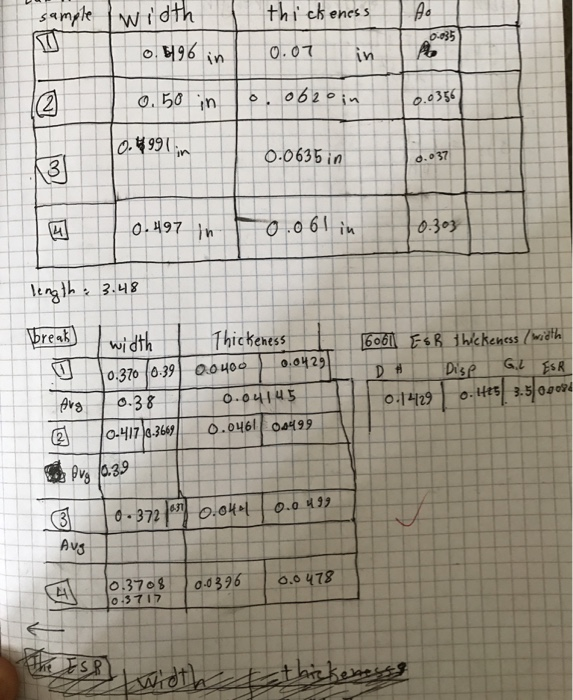 sample width thickeness Ao
1 0.496 in 0.07 in 0.035
2 0.50 in 0.0620 in 0.0356
3 0.4991 in 0.0635 in 0.037
4 0.497 in 0.061 in 0.303
length : 3.48
break width Thickeness
1 0.370 0.39 0.0400 0.0429
Avg 0.38 0.04145
2 0.417 0.3669 0.0461 0.0499
Avg 0.39
3 0.372 0.37 0.0499
Avg
4 0.3708 0.0396 0.0478
0.3717
6061 ESR thickeness / width
Disp G.L ESR
0.1429 3.5
The ESR width thickeness